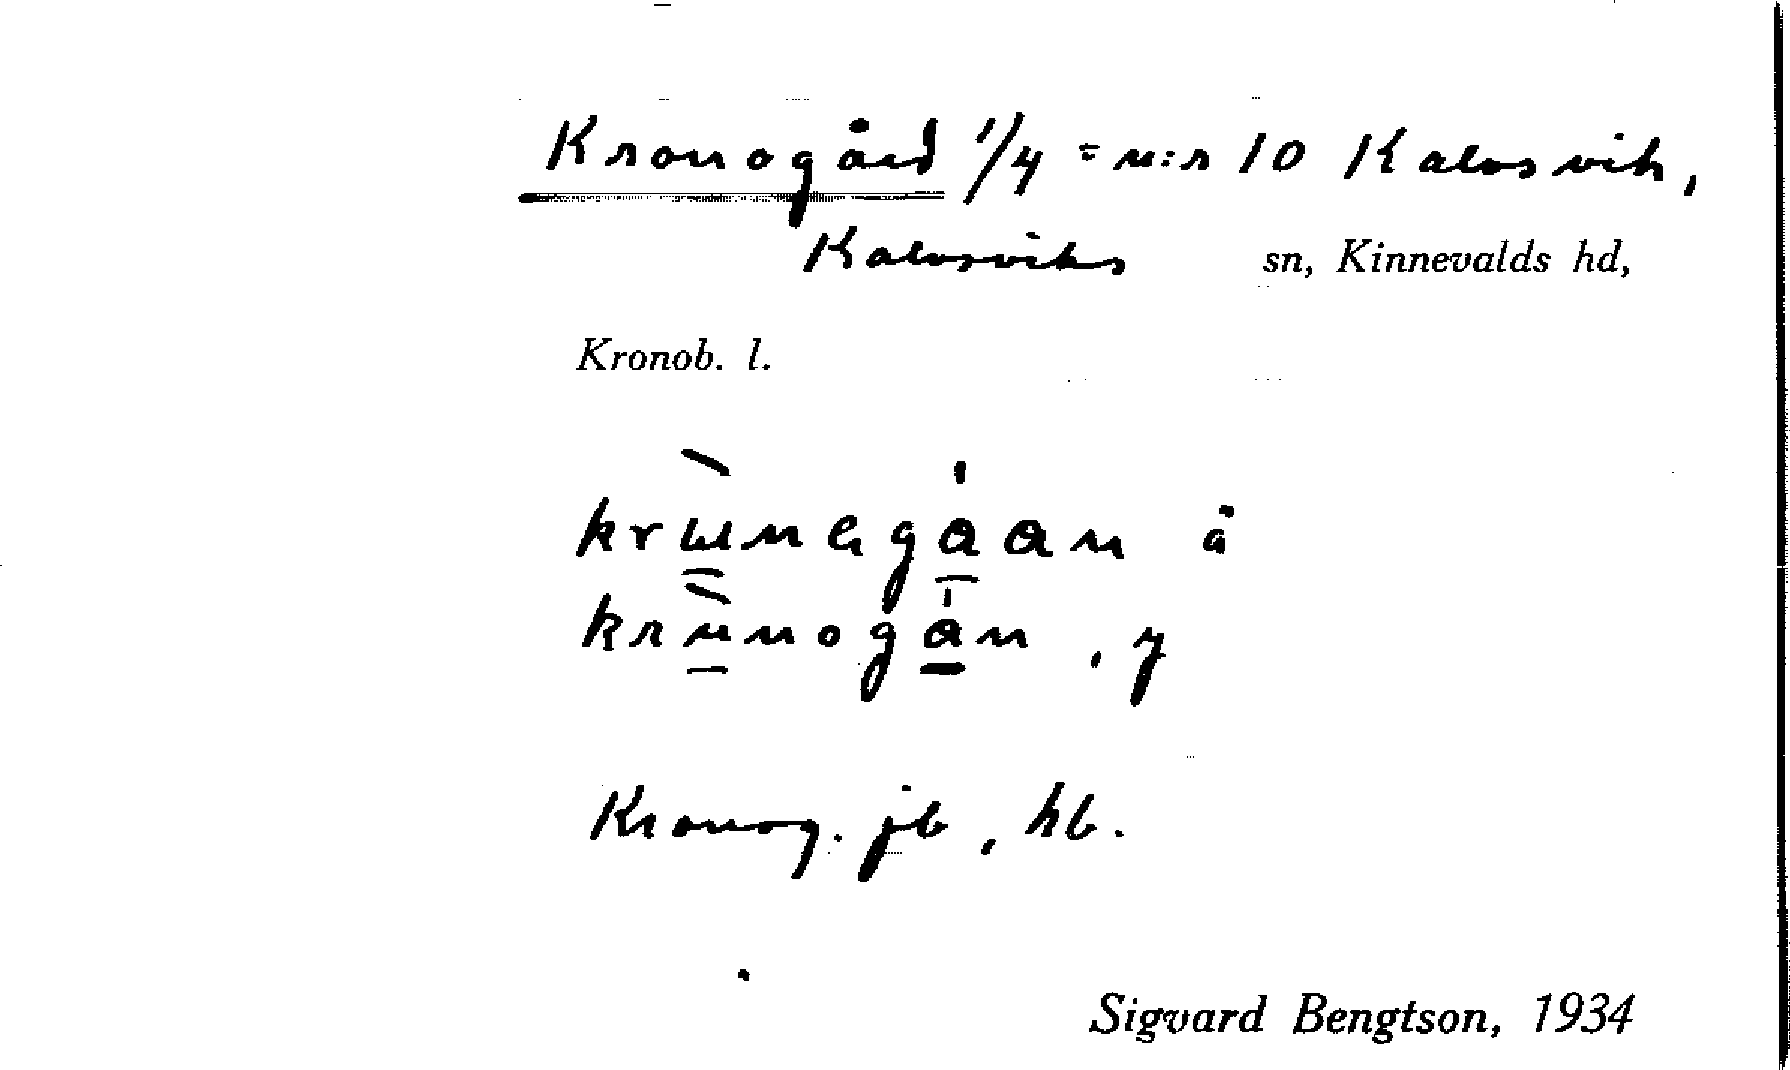 Kronogård 1/4 = n:r 10 Kalvsvik,
Kalvsviks sn, Kinnevalds hd,
Kronob. l.
å
, y
Kronog. jb, hb.
Sigvard Bengtson, 1934